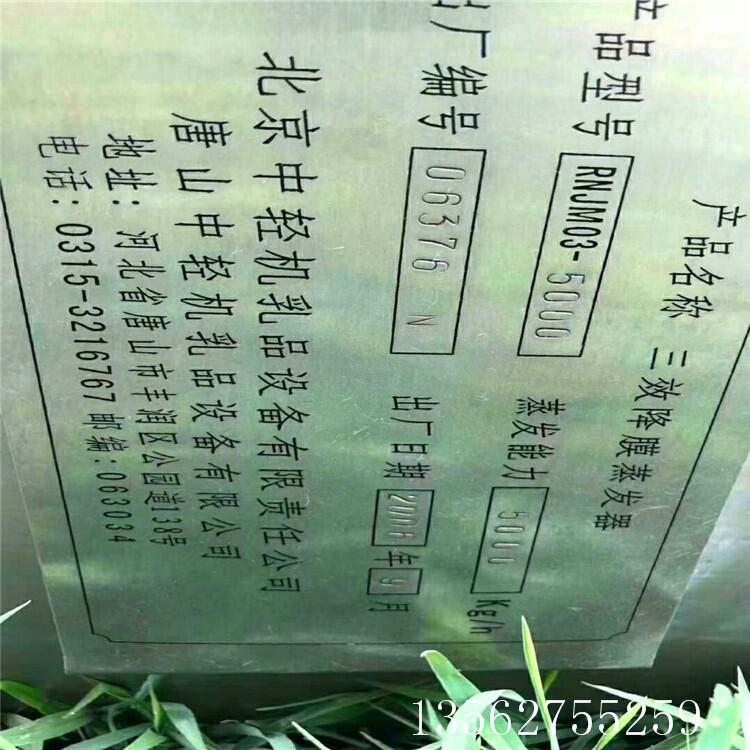 产品名称 三效降膜蒸发器
产品型号 RNJM03-5000 蒸发能力 5000 Kg/h
出厂编号 06376 N 出厂日期 2006 年 9 月
北京中轻机乳品设备有限责任公司
唐山中轻机乳品设备有限公司
地址:河北省唐山市丰润区公园道138号
电话:0315-3216767 邮编:063034
13562755259